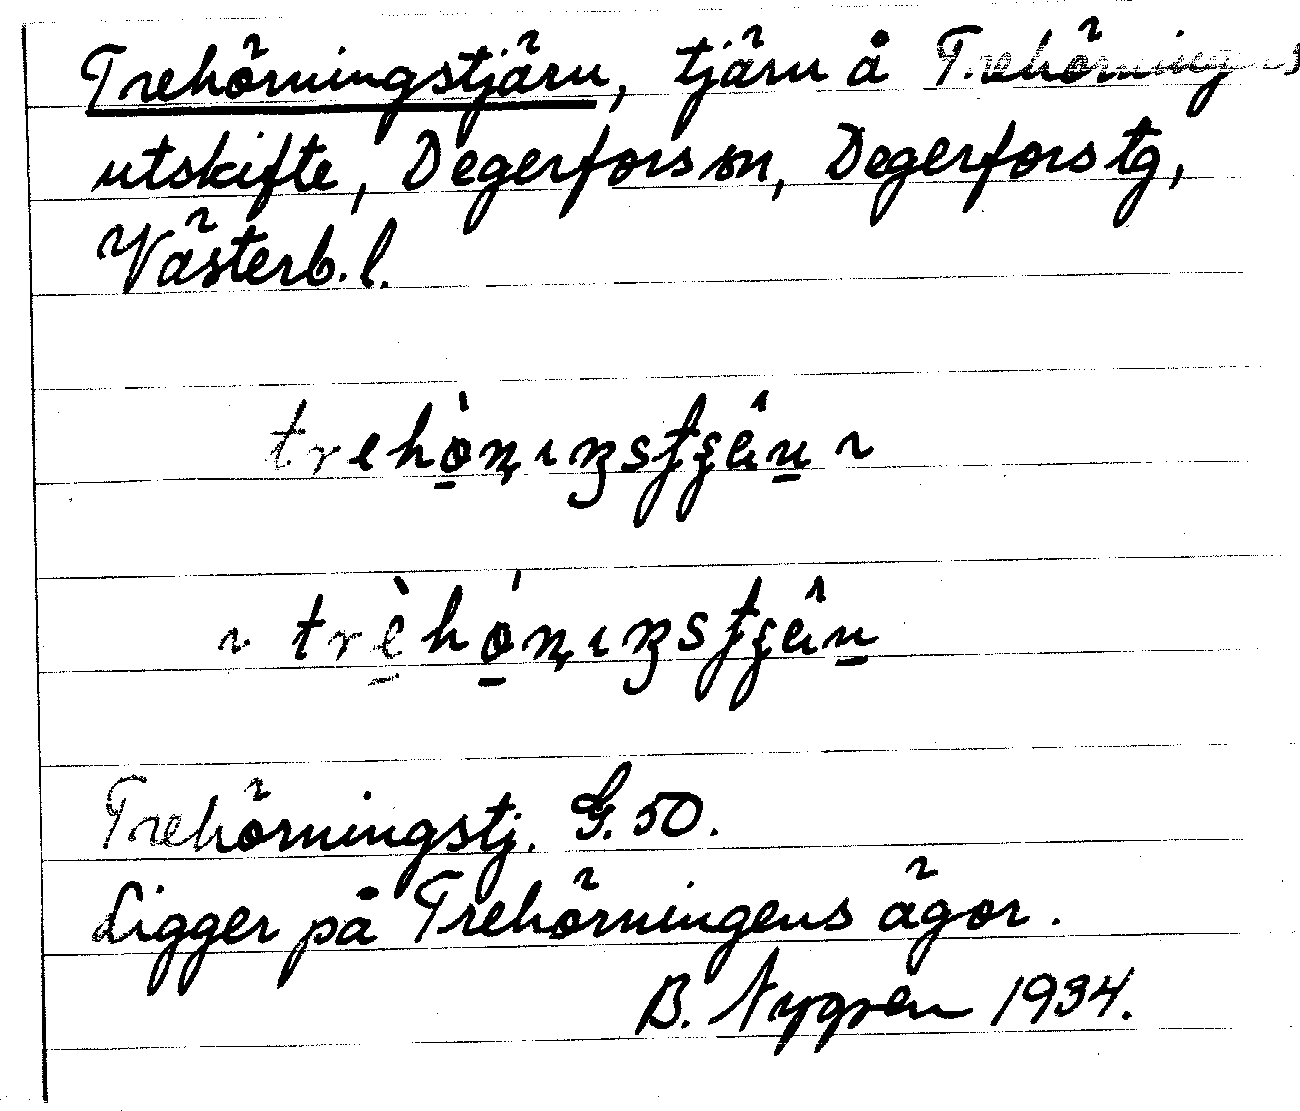 Trehörningstjärn, tjärn å Trehörningens
utskifte, Degerfors sn, Degerfors tg,
Västerb. l.
Trehörningstj. G. 50.
Ligger på Trehörningens ägor.
B. Nygren 1934.